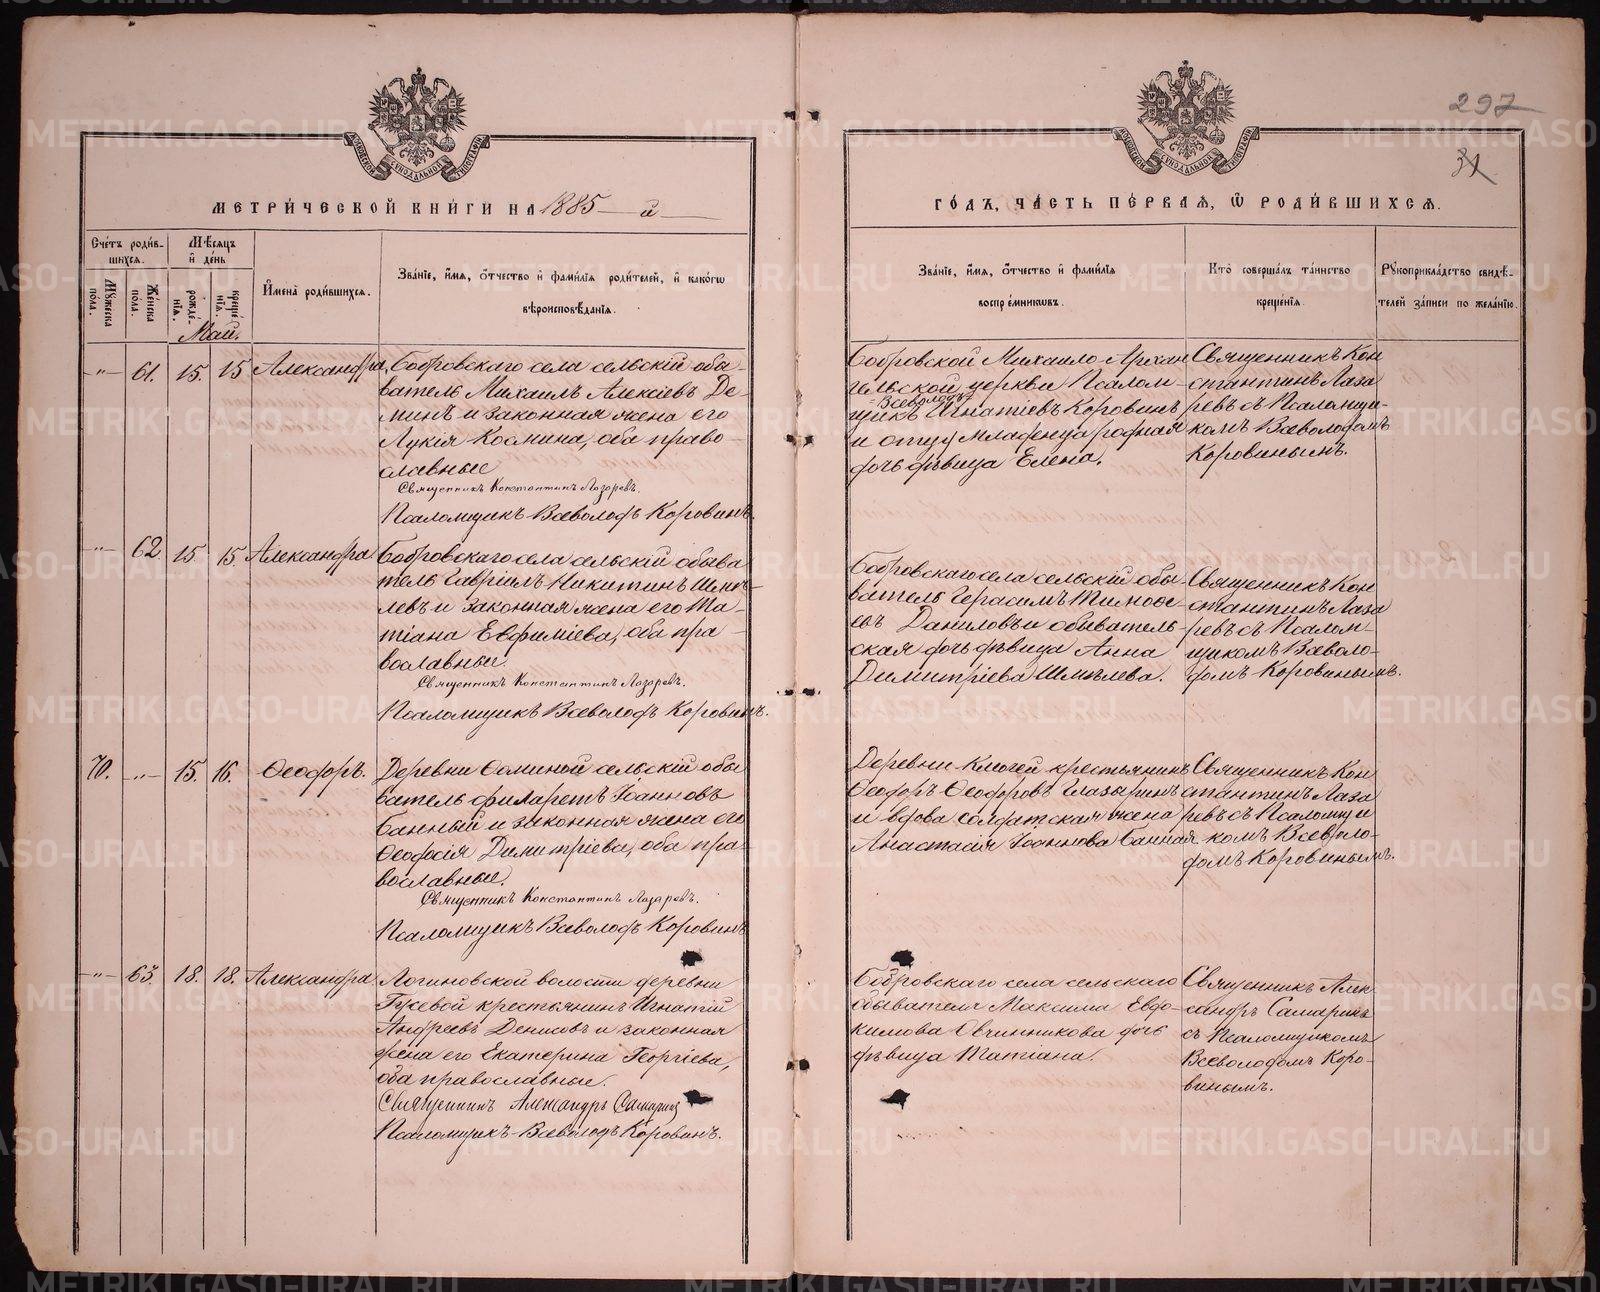 297
31
МОСКОВСКОЙ СѴНОДАЛЬНОЙ ТИПОГРАФІИ
МОСКОВСКОЙ СѴНОДАЛЬНОЙ ТИПОГРАФІИ
МЕТРИ́ЧЕСКОЙ КНИ́ГИ НА 1885 — й —
ГО́ДЪ, ЧА́СТЬ ПЕ́РВАЯ, Ѡ РОДИ́ВШИХСЯ.
Сче́тъ роди́в-
шихся.
Мꙋжеска по́ла.
Же́нска по́ла.
Мѣ́сяцъ
и҆ де́нь
рожде́-
нїя.
креще́-
нїя.
И҆мена̀ роди́вшихся.
Зва́нїе, и҆́мя, ѻ҆́тчество и҆ фами́лїя роди́телей, и҆ како́гѡ
вѣроисповѣ́данїя.
Зва́нїе, и҆́мя, ѻ҆́тчество и҆ фами́лїя
воспрїе́мникѡвъ.
Кто̀ соверша́лъ та́инство
креще́нїя.
Рꙋкоприкла́дство свидѣ́-
телей за́писи по жела́нїю.
Май.
-"- 61. 15. 15 Александра,
Бобровскаго села сельскій обы-
ватель Михаилъ Алексіевъ Де-
минъ и законная жена его
Лукія Космина, оба право-
славные
Священникъ Константинъ Лазаревъ.
Псаломщикъ Всеволодъ Коровинъ.
Бобровской Михаило-Архан
гельской церкви Псалом-
= Всеволодъ =
щикъ Игнатіевъ Коровинъ
и отцу младенца родная
дочь дѣвица Елена.
Священникъ Кон
стантинъ Лаза
ревъ съ Псаломщи-
комъ Всеволодомъ
Коровинымъ.
-"- 62 15 15. Александра
Бобровскаго села сельскій обыва
тель Гавріилъ Никитинъ Шмѣ-
левъ и законная жена его Та-
тіана Евфиміева, оба пра-
вославные.
Священникъ Константинъ Лазаревъ.
Псаломщикъ Всеволодъ Коровинъ.
Бобровскаго села сельскій обы-
ватель Герасимъ Тимоѳе-
евъ Даниловъ и обыватель-
ская дочь дѣвица Анна
Димитріева Шмѣлева.
Священникъ Кон
стантинъ Лаза
ревъ съ Псалом-
щикомъ Всеволо-
домъ Коровинымъ.
70. -"- 15. 16. Ѳеодоръ.
Деревни Ѳоминой сельскій обы
ватель Филаретъ Іоанновъ
Банный и законная жена его
Ѳеодосія Димитріева, оба пра
вославные.
Священникъ Константинъ Лазаревъ.
Псаломщикъ Всеволодъ Коровинъ
Деревни Ключей крестьянинъ
Ѳеодоръ Ѳеодоровъ Глазыринъ
и вдова солдатская жена
Анастасія Іоаннова Банная
Священникъ Кон
стантинъ Лаза
ревъ съ Псаломщи
комъ Всеволо-
домъ Коровинымъ.
-"- 63. 18. 18. Александра
Логиновской волости деревни
Гусевой крестьянинъ Игнатій
Андреевъ Денисовъ и законная
жена его Екатерина Георгіева,
оба православные.
Священникъ Александръ Самаринъ
Псаломщикъ Всеволодъ Коровинъ.
Бобровскаго села сельскаго
обывателя Максима Евдо-
кимова Овчинникова дочь
дѣвица Татіана.
Священникъ Алек
сандръ Самаринъ
съ Псаломщикомъ
Всеволодомъ Коро-
винымъ.
METRIKI.GASO-URAL.RU